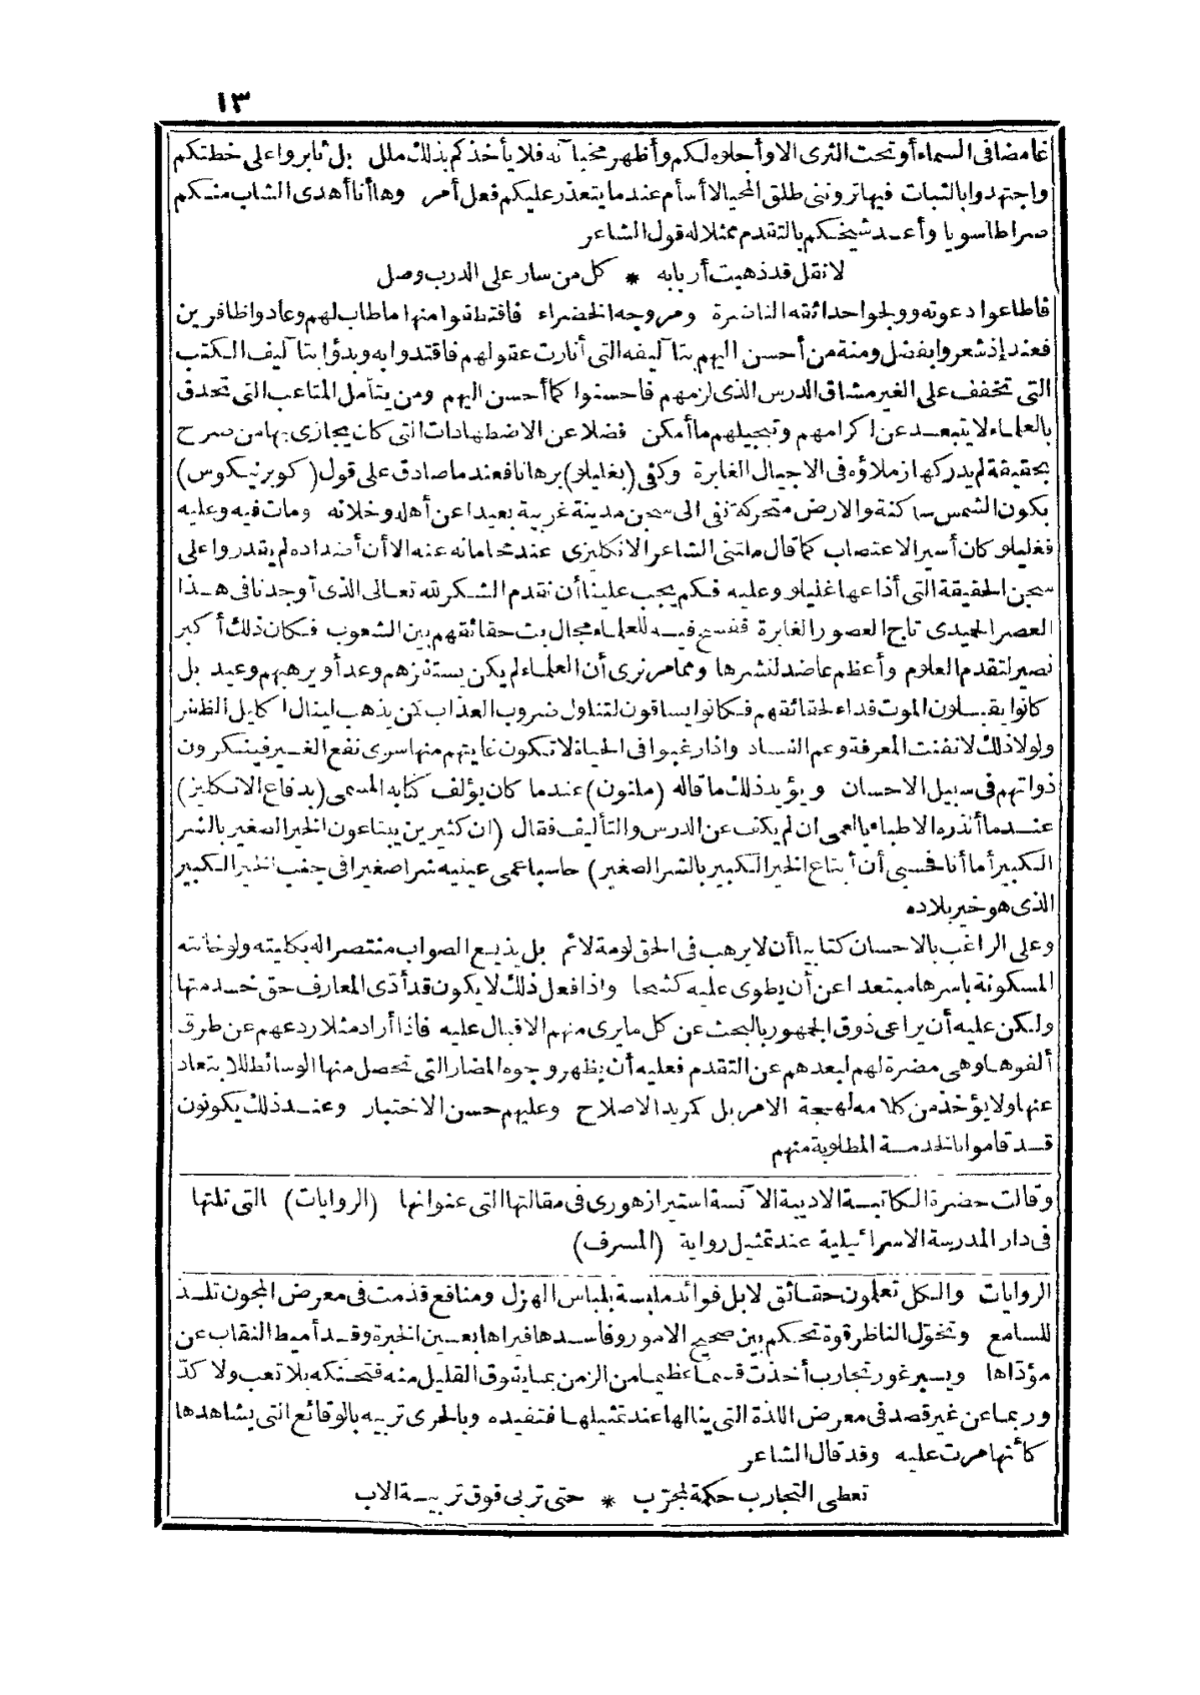 ١٣
غامضا فى السماء أو تحت الثرى الا وأجلاه لكم وأظهر مخبآ ته فلا يأخذكم بذلك ملل بل ثابروا على خطتكم
واجتهدوا بالثبات فيها تروننى طلق المحيا لا أسأم عندما يتعذر عليكم فعل أمر وها أنا أهدى الشاب منكم
صراطا سويا وأعد شيخكم بالتقدم ممثلا له قول الشاعر
لا تقل قد ذهبت أربابه * كل من سار على الدرب وصل
فاطاعوا دعوته وولجوا حدائقه الناضرة ومروجه الخضراء فاقتطفوا منها ما طاب لهم وعادوا ظافرين
فعندإذ شعروا بفضل ومنة من أحسن اليهم بتا آليفه التى أنارت عقولهم فاقتدوا به وبدؤا بتا آليف الكتب
التى تخفف على الغير مشاق الدرس الذى لزمهم فاحسنوا كما أحسن اليهم ومن يتأمل المتاعب التى تحدق
بالعلماء لا يتبعد عن اكرامهم وتبجيلهم ما أمكن فضلا عن الاضطهادات التى كان يجازى بها من صرح
بحقيقة لم يدركها زملاؤه فى الاجيال الغابرة وكفى (بغليلو) برهانا فعندما صادق على قول (كوبرنيكوس)
بكون الشمس ساكنة والارض متحركة نفى الى سجن مدينة غريبة بعيدا عن أهله وخلانه ومات فيه وعليه
فغليلو كان أسير الاعتصاب كما قال ملتنى الشاعر الانكليزى عند محاماته عنه الا أن أضداده لم يقدروا على
سجن الحقيقة التى أذاعها غليلو وعليه فكم يجب علينا أن نقدم الشكر لله تعالى الذى أوجدنا فى هذا
العصر الحميدى تاج العصور الغابرة ففسح فيه للعلماء مجال بث حقائقهم بين الشعوب فكان ذلك أكبر
نصير لتقدم العلوم وأعظم عاضد لنشرها ومما مر نرى أن العلماء لم يكن يستفزهم وعد أو يرهبهم وعيد بل
كانوا يقبلون الموت فداء لحقائقهم فكانوا يساقون لتناول ضروب العذاب كمن يذهب لينال اكايل الظفر
ولولا ذلك لانفنت المعرفة وعم الفساد واذا رغبوا فى الحياة لا تكون غايتهم منها سوى نفع الغير فينكرون
ذواتهم فى سبيل الاحسان ويؤيد ذلك ما قاله (ملتون) عندما كان يؤلف كتابه المسمى (بدفاع الانكليز)
عندما أنذره الاطباء بالعمى ان لم يكف عن الدرس والتأليف فقال (ان كثيرين يبتاعون الخير الصغير بالشر
الكبير أما أنا فحسبى أن أبتاع الخير الكبير بالشر الصغير) حاسبا عمى عينيه شرا صغيرا فى جنب الخير الكبير
الذى هو خير بلاده
وعلى الراغب بالاحسان كتابيا أن لا يرهب فى الحق لومة لائم بل يذيع الصواب منتصرا له بكليته ولو خانته
المسكونة باسرها مبتعدا عن أن يطوى عليه كشحا واذا فعل ذلك لا يكون قد أدّى المعارف حق خدمتها
ولكن عليه أن يراعى ذوق الجمهور بالبحث عن كل ما يرى منهم الاقبال عليه فاذا أراد مثلا ردعهم عن طرق
ألفوها وهى مضرة لهم لبعدهم عن التقدم فعليه أن يظهر وجوه المضار التى تحصل منها الوسائط للابتعاد
عنها ولا يؤخذ من كلامه لهجة الامر بل كمريد الاصلاح وعليهم حسن الاختبار وعند ذلك يكونون
قد قاموا بالخدمة المطلوبة منهم
وقالت حضرة الكاتبة الاديبة الآنسة استير ازهورى فى مقالتها التى عنوانها (الروايات) التى تلتها
فى دار المدرسة الاسرائيلية عند تمثيل رواية (المسرف)
الروايات والكل تعلمون حقائق لا بل فوائد ملبسة بلباس الهزل ومنافع قدمت فى معرض المجون تلذ
للسامع وتخوّل الناظر قوة تحكم بين صحيح الامور وفاسدها فيراها بعين الخبرة وقد أميط النقاب عن
مؤدّاها ويسبر غور تجارب أخذت قسما عظيما من الزمن بما يفوق القليل منه فتحنكه بلا تعب ولا كدّ
وربما عن غير قصد فى معرض اللذة التى ينالها عند تمثيلها فتفيده وبالحرى تربيه بالوقائع التى يشاهدها
كأنها مرت عليه وقد قال الشاعر
تعطى التجارب حكمة لمجرّب * حتى تربى فوق تربية الاب